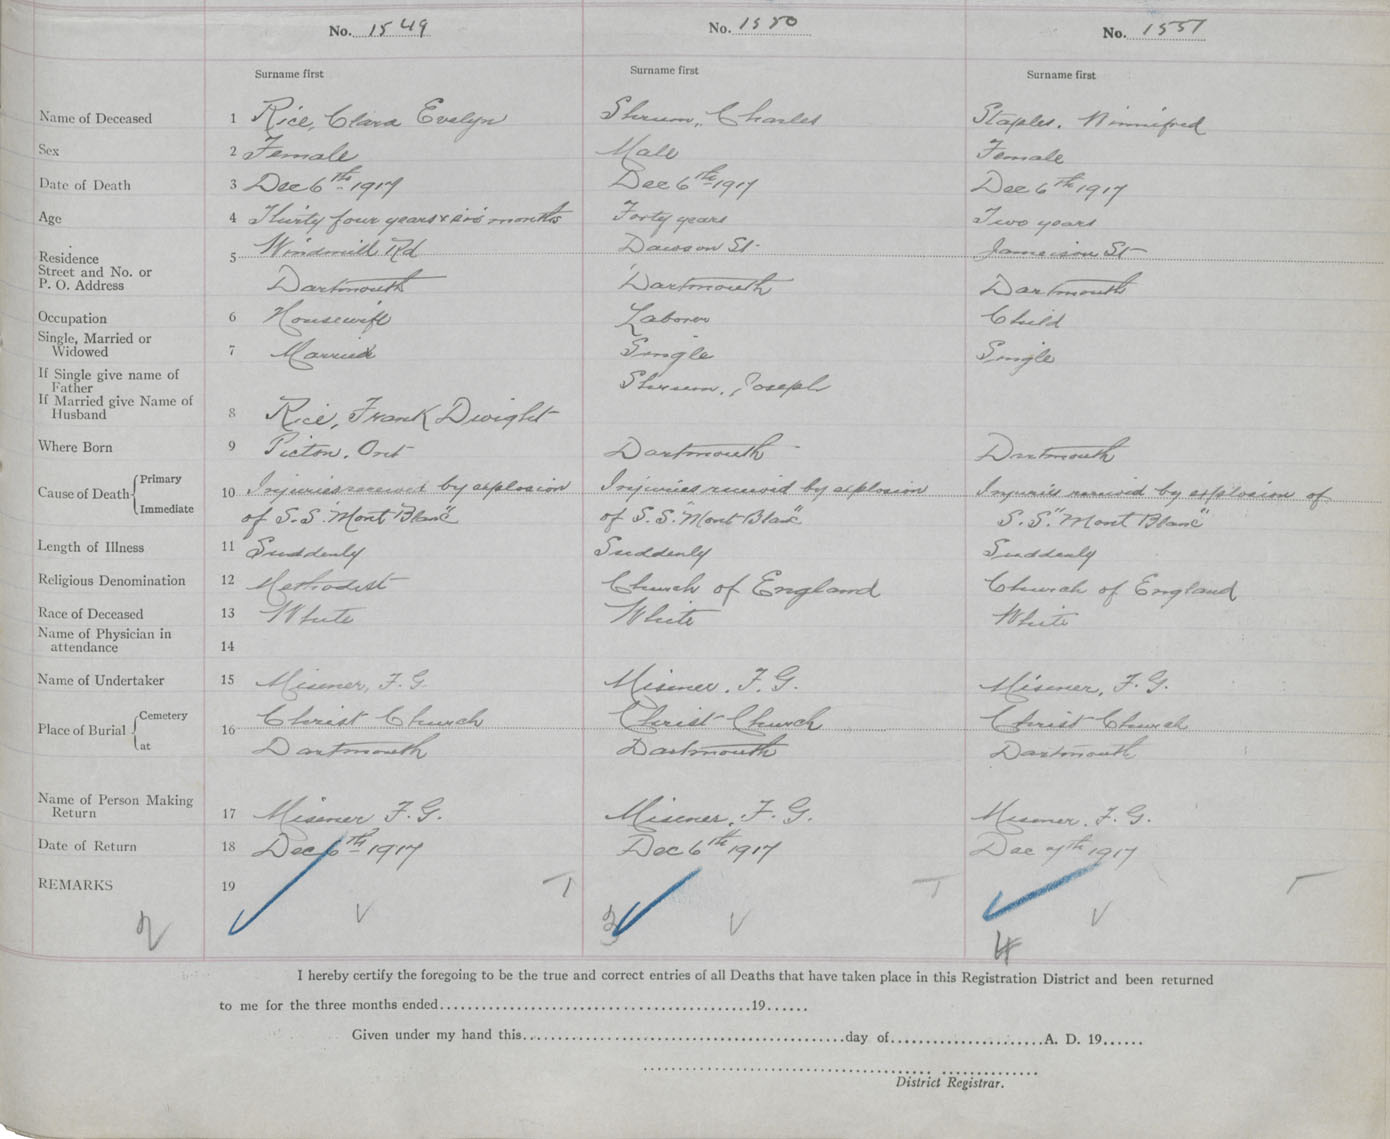 No. 1549 No. 1550 No. 1551
Surname first Surname first Surname first
Name of Deceased 1 Rice, Clara Evelyn Shrum, Charles Staples, Winnifred
Sex 2 Female Male Female
Date of Death 3 Dec 6th 1917 Dec 6th 1917 Dec 6th 1917
Age 4 Thirty four years & six months Forty years Two years
Residence 5 Windmill Rd Dawson St Jameison St
Street and No. or
P. O. Address Dartmouth Dartmouth Dartmouth
Occupation 6 Housewife Laborer Child
Single, Married or
Widowed 7 Married Single Single
If Single give name of
Father Shrum, Joseph
If Married give Name of
Husband 8 Rice, Frank Dwight
Where Born 9 Picton, Ont Dartmouth Dartmouth
Cause of Death { Primary
10 Injuries received by explosion Injuries received by explosion Injuries received by explosion of
Immediate of S.S. Mont Blanc" of S.S. Mont Blanc" S.S. "Mont Blanc"
Length of Illness 11 Suddenly Suddenly Suddenly
Religious Denomination 12 Methodist Church of England Church of England
Race of Deceased 13 White White White
Name of Physician in
attendance 14
Name of Undertaker 15 Misener, F. G. Misener, F. G. Misener, F. G.
Place of Burial { Cemetery 16 Christ Church Christ Church Christ Church
at Dartmouth Dartmouth Dartmouth
Name of Person Making
Return 17 Misener F. G. Misener, F. G. Misener, F. G.
Date of Return 18 Dec 6th 1917 Dec 6th 1917 Dec 7th 1917
REMARKS 19
2 3 4
I hereby certify the foregoing to be the true and correct entries of all Deaths that have taken place in this Registration District and been returned
to me for the three months ended............19......
Given under my hand this............day of............A. D. 19......
District Registrar.